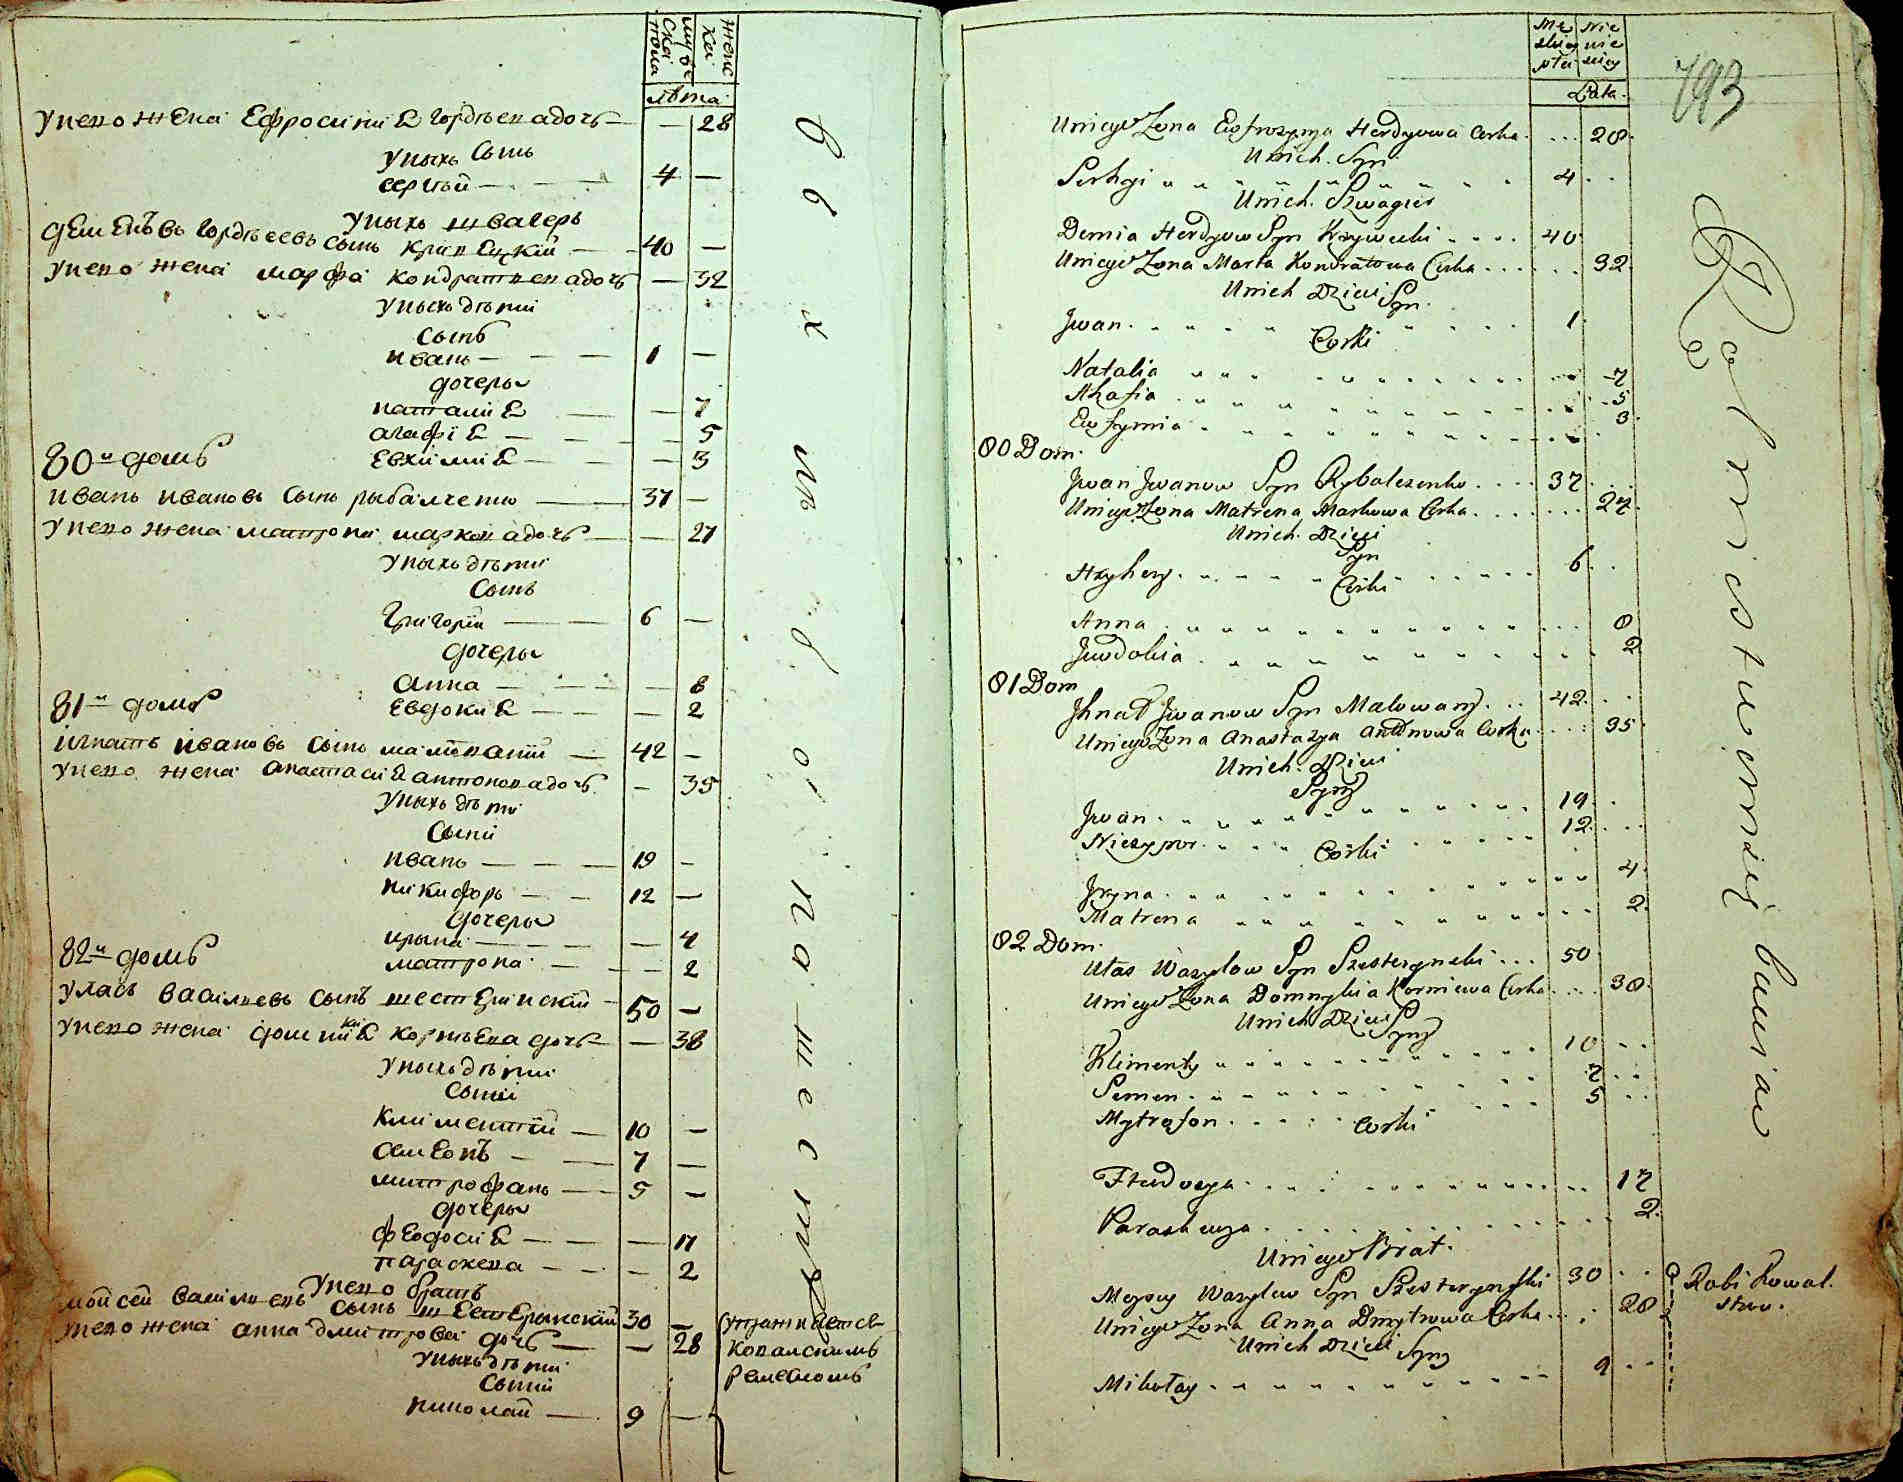 мужеска пола
женска
лѣта
унего жена Ефросинія Гордѣева дочь — — 28
унихъ сынъ
сергѣй — — 4 —
унихъ швагеръ
Дементъ Гордѣевъ сынъ кривецкій — 40 —
унего жена марфа кондратьева дочь — 32
унихъ дѣти
сынъ
иванъ — — — 1 —
дочеры
наталія — — 7
агафія — — — 5
Евхимия — — — 3
80й домъ
иванъ ивановъ сынъ рыбалченко — 37 —
унего жена матрона маркова дочь — — 27
унихъ дѣти
сынъ
Григорій — — 6 —
дочеры
анна — — — 8
Евдокия — — — 2
81й домъ
игнатъ ивановъ сынъ малеваній — 42 —
унего жена анастасия антонова дочь — 35
унихъ дѣти
сыни
иванъ — — — 19 —
никифоръ — — 12 —
дочеры
ирына — — — 4
матрона — — — 2
82й домъ
уласъ васильевъ сынъ шестеринскій — 50 —
унего жена доминикия корнѣева дочь — — 38
унихъ дѣти
сыни
климентій — 10 —
семенъ — — 7 —
митрофанъ — 5 —
дочеры
феодосия — — — 17
параскева — — — 2
унего братъ
мойсей васильевъ сынъ шестерынскій 30 —
унего жена анна дмитрова дочь — — 28
унихъ дѣти
сыни
николай — 9 —
упражняется
ковалскимъ
ремесломъ
вбхль огпашества
Męzkiey płci
Lata
793
Uniego Żona Ewfrozyna Herdyowa Corka ... 28
Unich Syn
Serhgi 4
Unich Szwagier
Demia Herdyow Syn Krzywecki .... 40
Uniego Żona Marta Kondratowa Corka ...... 32
Unich Dzieci Syn
Jwan 1
Corki
Natalia 7
Ahafia 5
Ewfymia 3
80 Dom
Jwan Jwanow Syn Rybalczenko .... 37
Uniego Żona Matrena Markowa Corka ....... 27
Unich Dzieci
Syn
Hryhory 6
Corki
Anna 8
Jewdokia 2
81 Dom
Jhnat Jwanow Syn Malowany ... 42
Uniego Żona Anastazya Antonowa Corka .... 35
Unich Dzieci
Syny
Jwan 19
Niczypor 12
Corki
Jryna 4
Matrena 2
82 Dom
Ułas Wasylow Syn Szesterynski ... 50
Uniego Żona Domnykia Korniewa Corka ... 38
Unich Dzieci Syny
Klimenty 10
Semen 7
Mytrofon 5
Corki
Fteodosya 17
Paraskewya 2
Uniego Brat
Moysey Wasylow Syn Szesterynski 30
Uniego Żona Anna Dmytrowa Corka ... 28
Unich Dzieci Syny
Mikołay 9
Robi Kowal
stwo.